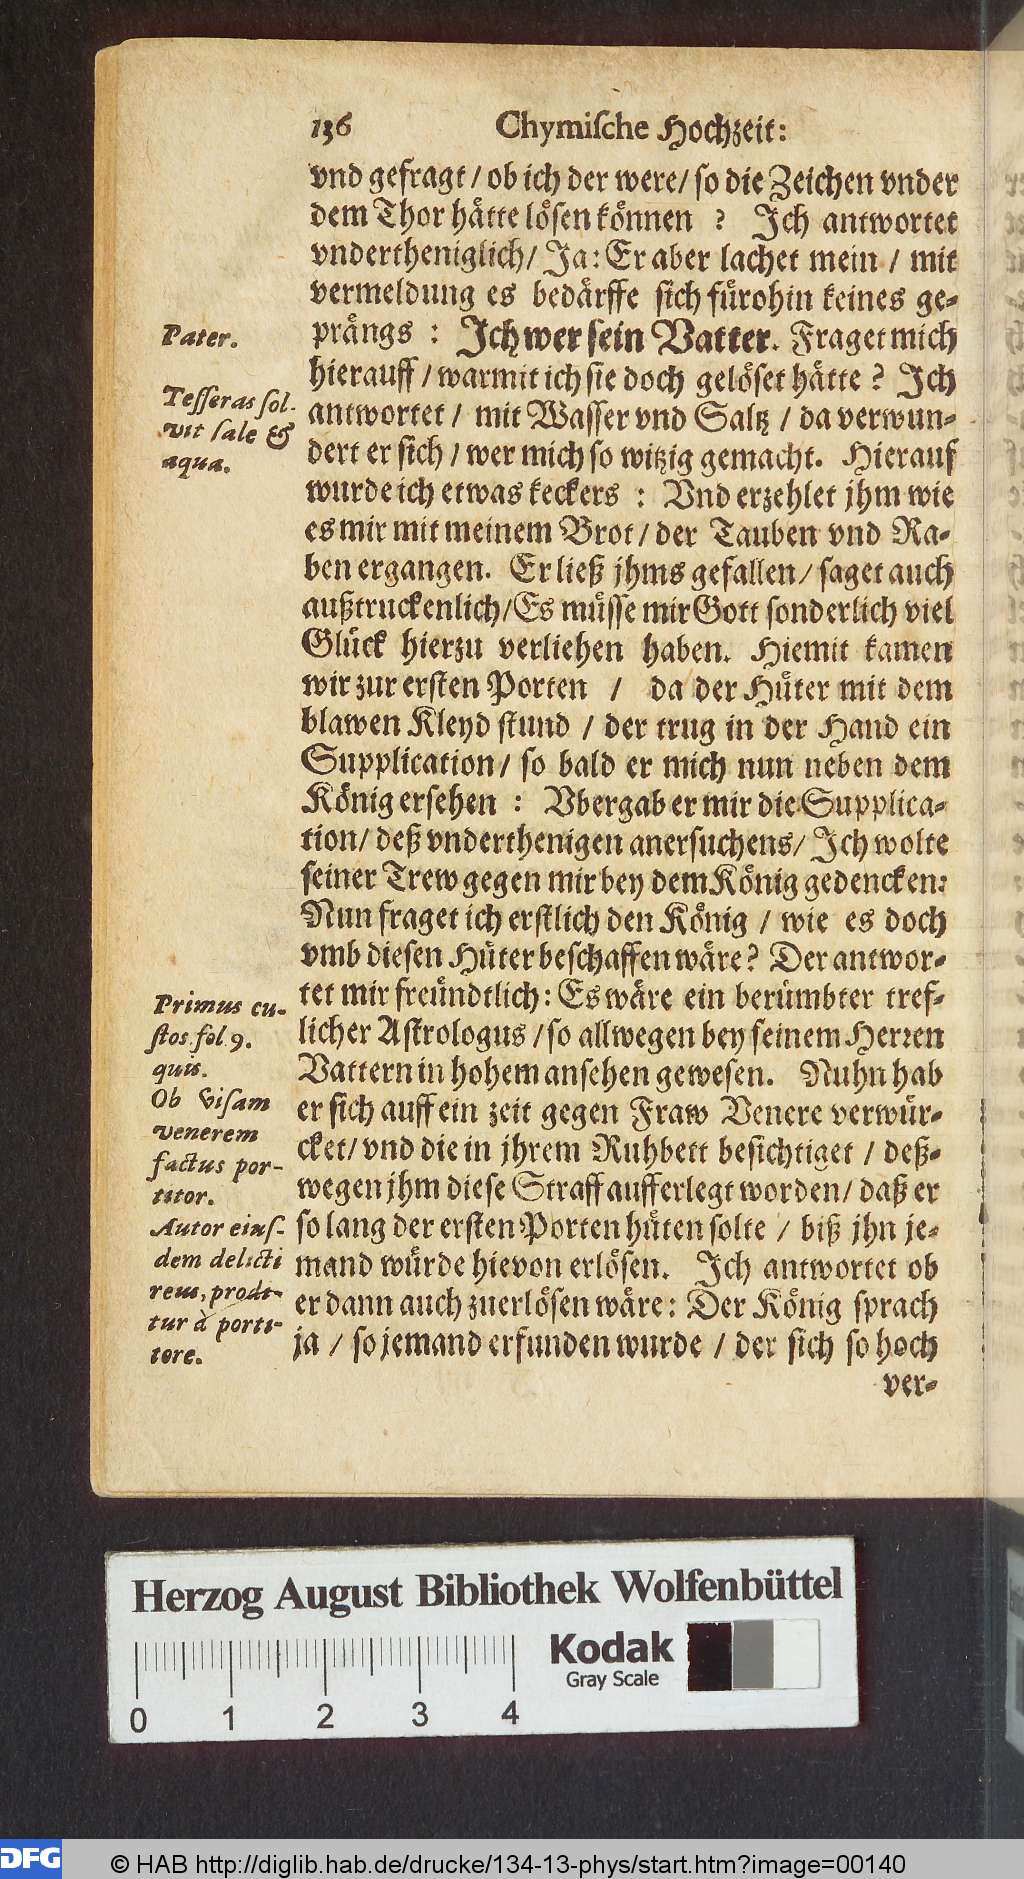 136 Chymische Hochzeit:
vnd gefragt / ob ich der were / so die Zeichen vnder
dem Thor hätte lösen können ? Ich antwortet
vndertheniglich / Ja: Er aber lachet mein / mit
vermeldung es bedärffe sich fürohin keines ge-
prängs : Ich wer sein Vatter. Fraget mich
hierauff / warmit ich sie doch gelöset hätte ? Ich
antwortet / mit Wasser vnd Saltz / da verwun-
dert er sich / wer mich so witzig gemacht. Hierauf
wurde ich etwas keckers : Vnd erzehlet jhm wie
es mir mit meinem Brot / der Tauben vnd Ra-
ben ergangen. Er ließ jhms gefallen / saget auch
außtruckenlich / Es müsse mir Gott sonderlich viel
Glück hierzu verliehen haben. Hiemit kamen
wir zur ersten Porten / da der Hüter mit dem
blawen Kleyd stund / der trug in der Hand ein
Supplication / so bald er mich nun neben dem
König ersehen : Vbergab er mir die Supplica-
tion / deß vnderthenigen anersuchens / Ich wolte
seiner Trew gegen mir bey dem König gedencken:
Nun fraget ich erstlich den König / wie es doch
vmb diesen Hüter beschaffen wäre? Der antwor-
tet mir freündtlich: Es wäre ein berümbter tref-
licher Astrologus / so allwegen bey seinem Herren
Vattern in hohem ansehen gewesen. Nuhn hab
er sich auff ein zeit gegen Fraw Venere verwür-
cket / vnd die in jhrem Ruhbett besichtiget / deß-
wegen jhm diese Straff aufferlegt worden / daß er
so lang der ersten Porten hüten solte / biß jhn je-
mand würde hievon erlösen. Ich antwortet ob
er dann auch zuerlösen wäre: Der König sprach
ja / so jemand erfunden wurde / der sich so hoch
ver-
Pater.
Tesseras sol-
vit sale &
aqua.
Primus cu-
stos fol. 9.
quis.
Ob visam
venerem
factus por-
titor.
Autor eius-
dem delicti
reus, prodi-
tur à porti-
tore.
Herzog August Bibliothek Wolfenbüttel
Kodak
Gray Scale
0 1 2 3 4
DFG © HAB http://diglib.hab.de/drucke/134-13-phys/start.htm?image=00140